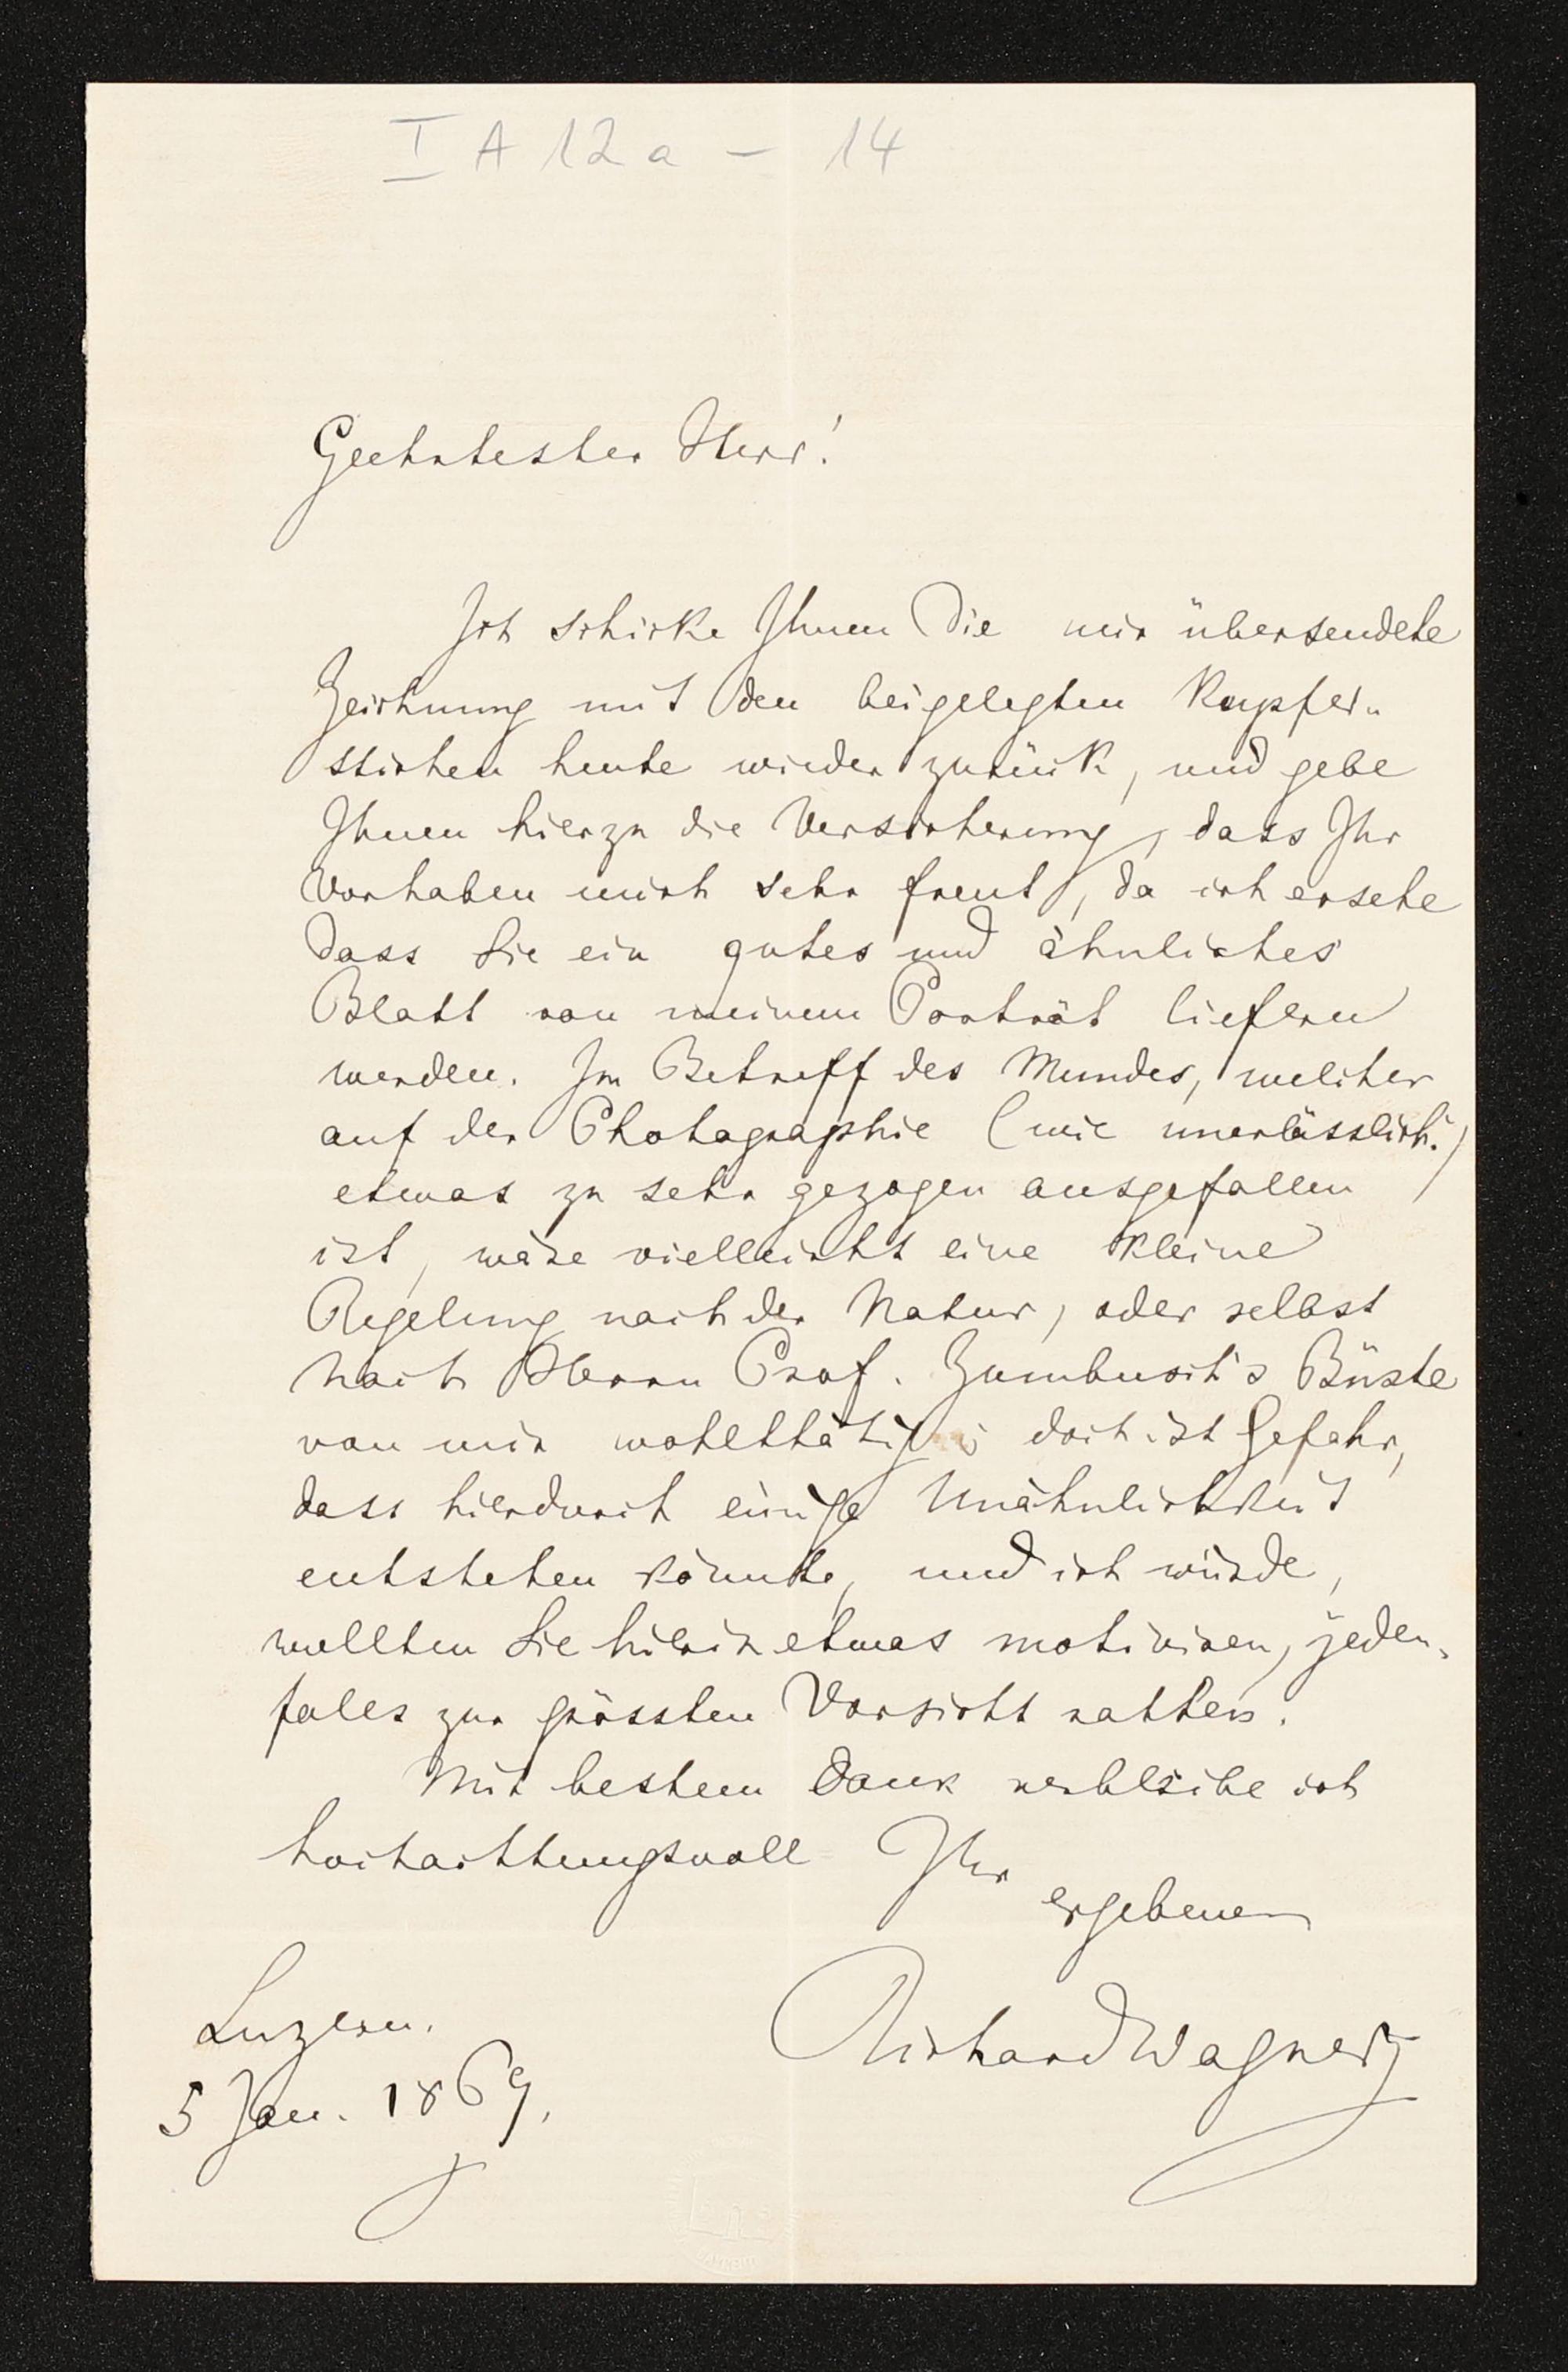 I A 12 a — 14
Geehrtester Herr!
Ich schicke Ihnen die mir übersendete
Zeichnung mit den beigelegten Kupfer-
stichen heute wieder zurück, und gebe
Ihnen hierzu die Versicherung, dass Ihr
Vorhaben mich sehr freut, da ich ersehe
dass Sie ein gutes und ähnliches
Blatt von meinem Porträt liefern
werden. Im Betreff des Mundes, welcher
auf der Photographie (wie unerlässlich!)
etwas zu sehr gezogen ausgefallen
ist, wäre vielleicht eine kleine
Regelung nach der Natur, oder selbst
nach Herrn Prof. Zumbusch's Büste
von mir wohlthätig; doch ist Gefahr,
dass hierdurch einige Unähnlichkeit
entstehen könnte, und ich würde,
wollten Sie hierin etwas motiviren, jeden-
falls zur grössten Vorsicht rathen.
Mit bestem Dank verbleibe ich
hochachtungsvoll Ihr
ergebener
Luzern.
RichardWagner
5 Jan. 1869.